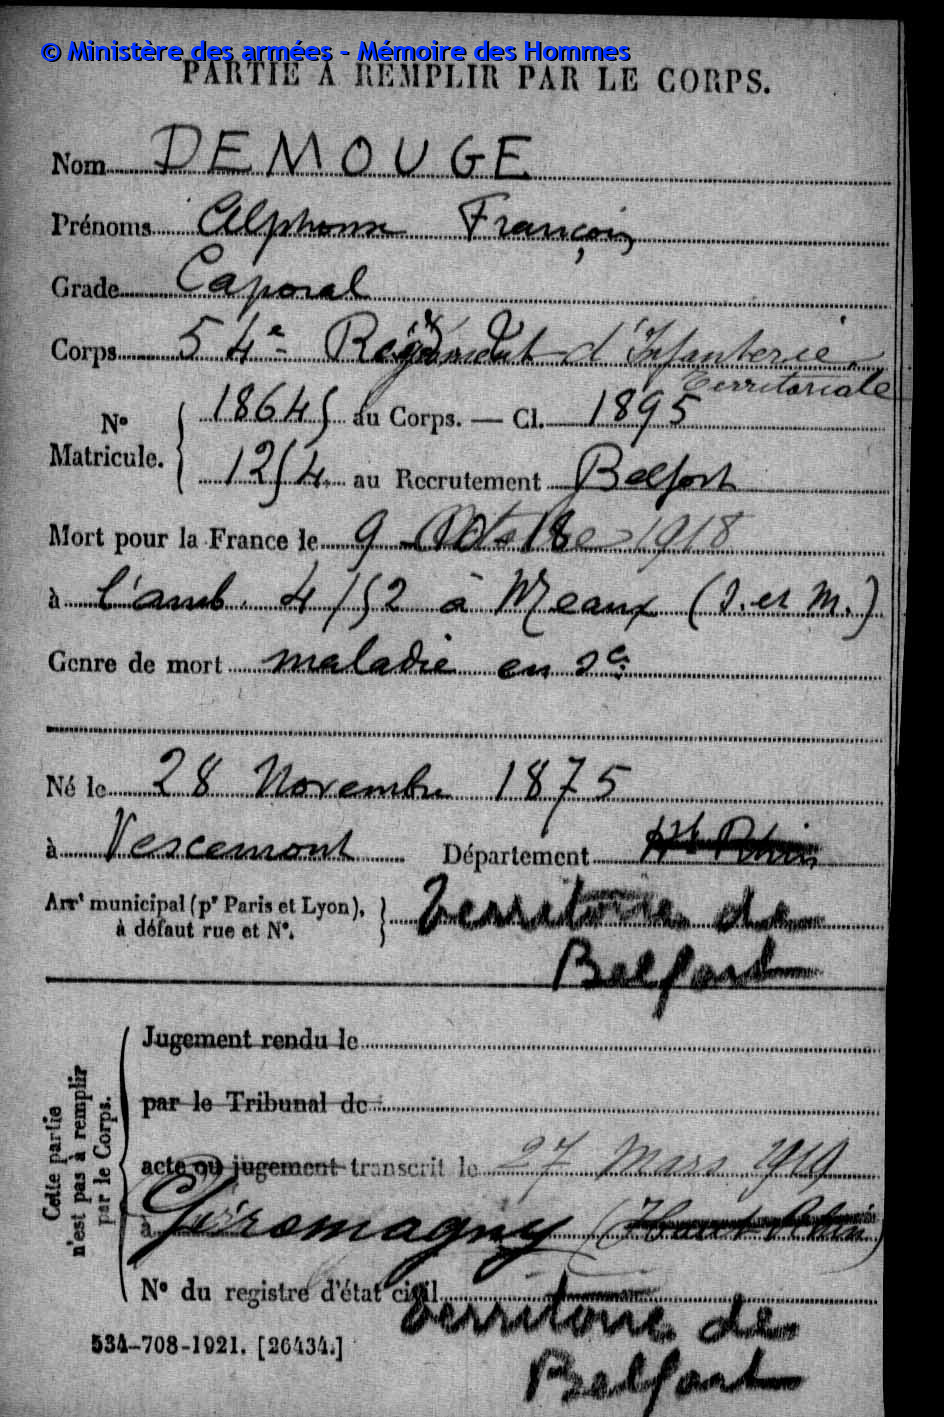 © Ministère des armées - Mémoire des Hommes
PARTIE À REMPLIR PAR LE CORPS.
Nom DEMOUGE
Prénoms Alphonse François
Grade Caporal
Corps 54e Régiment d'Infanterie
Territoriale
N° 18645 au Corps. — Cl. 1895
Matricule. 1254 au Recrutement Belfort
Mort pour la France le 9 Octobre 1918
à l'amb. 4/52 à Meaux (S. et M.)
Genre de mort maladie en sce
Né le 28 Novembre 1875
à Vescemont Département Ht Rhin
Arrt municipal (pr Paris et Lyon), à défaut rue et N°. Territoire de
Belfort
Cette partie n'est pas à remplir par le Corps.
Jugement rendu le
par le Tribunal de
acte ou jugement transcrit le 27 Mars 1919
à Giromagny (Haut Rhin)
N° du registre d'état civil
Territoire de
534-708-1921. [26434.]
Belfort